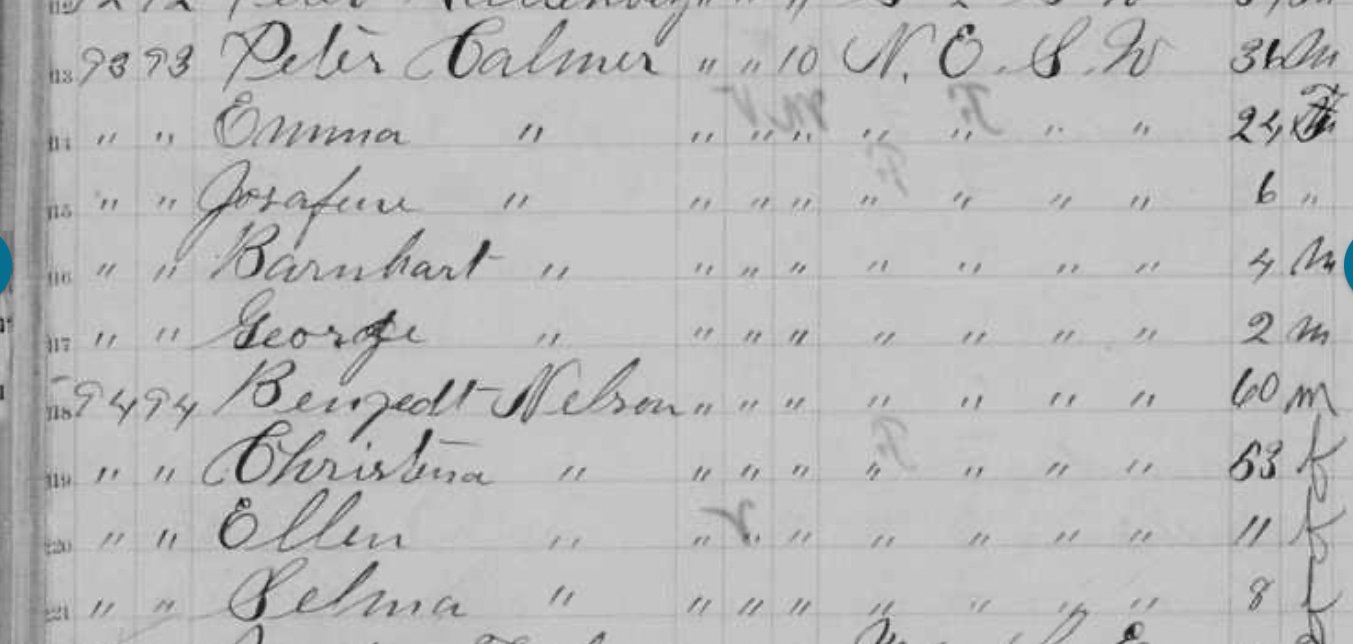 113 93 93 Peter Calmer " " 10 N. E. S. W 36 M
114 " " Emma " " " " " " " " 24 F
115 " " Josafine " " " " " " " " 6 "
116 " " Barnhart " " " " " " " " 4 M
117 " " George " " " " " " " " 2 M
118 94 94 Bengedt Nelson " " " " " " " 60 M
119 " " Christina " " " " " " " " 53 f
120 " " Ellen " " " " " " " " 11 f
121 " " Selma " " " " " " " " 8 f